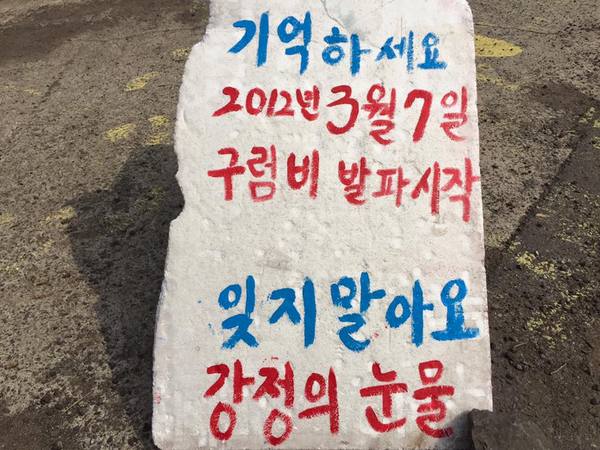 기억하세요
2012년 3월 7일
구럼비 발파시작
잊지말아요
강정의 눈물